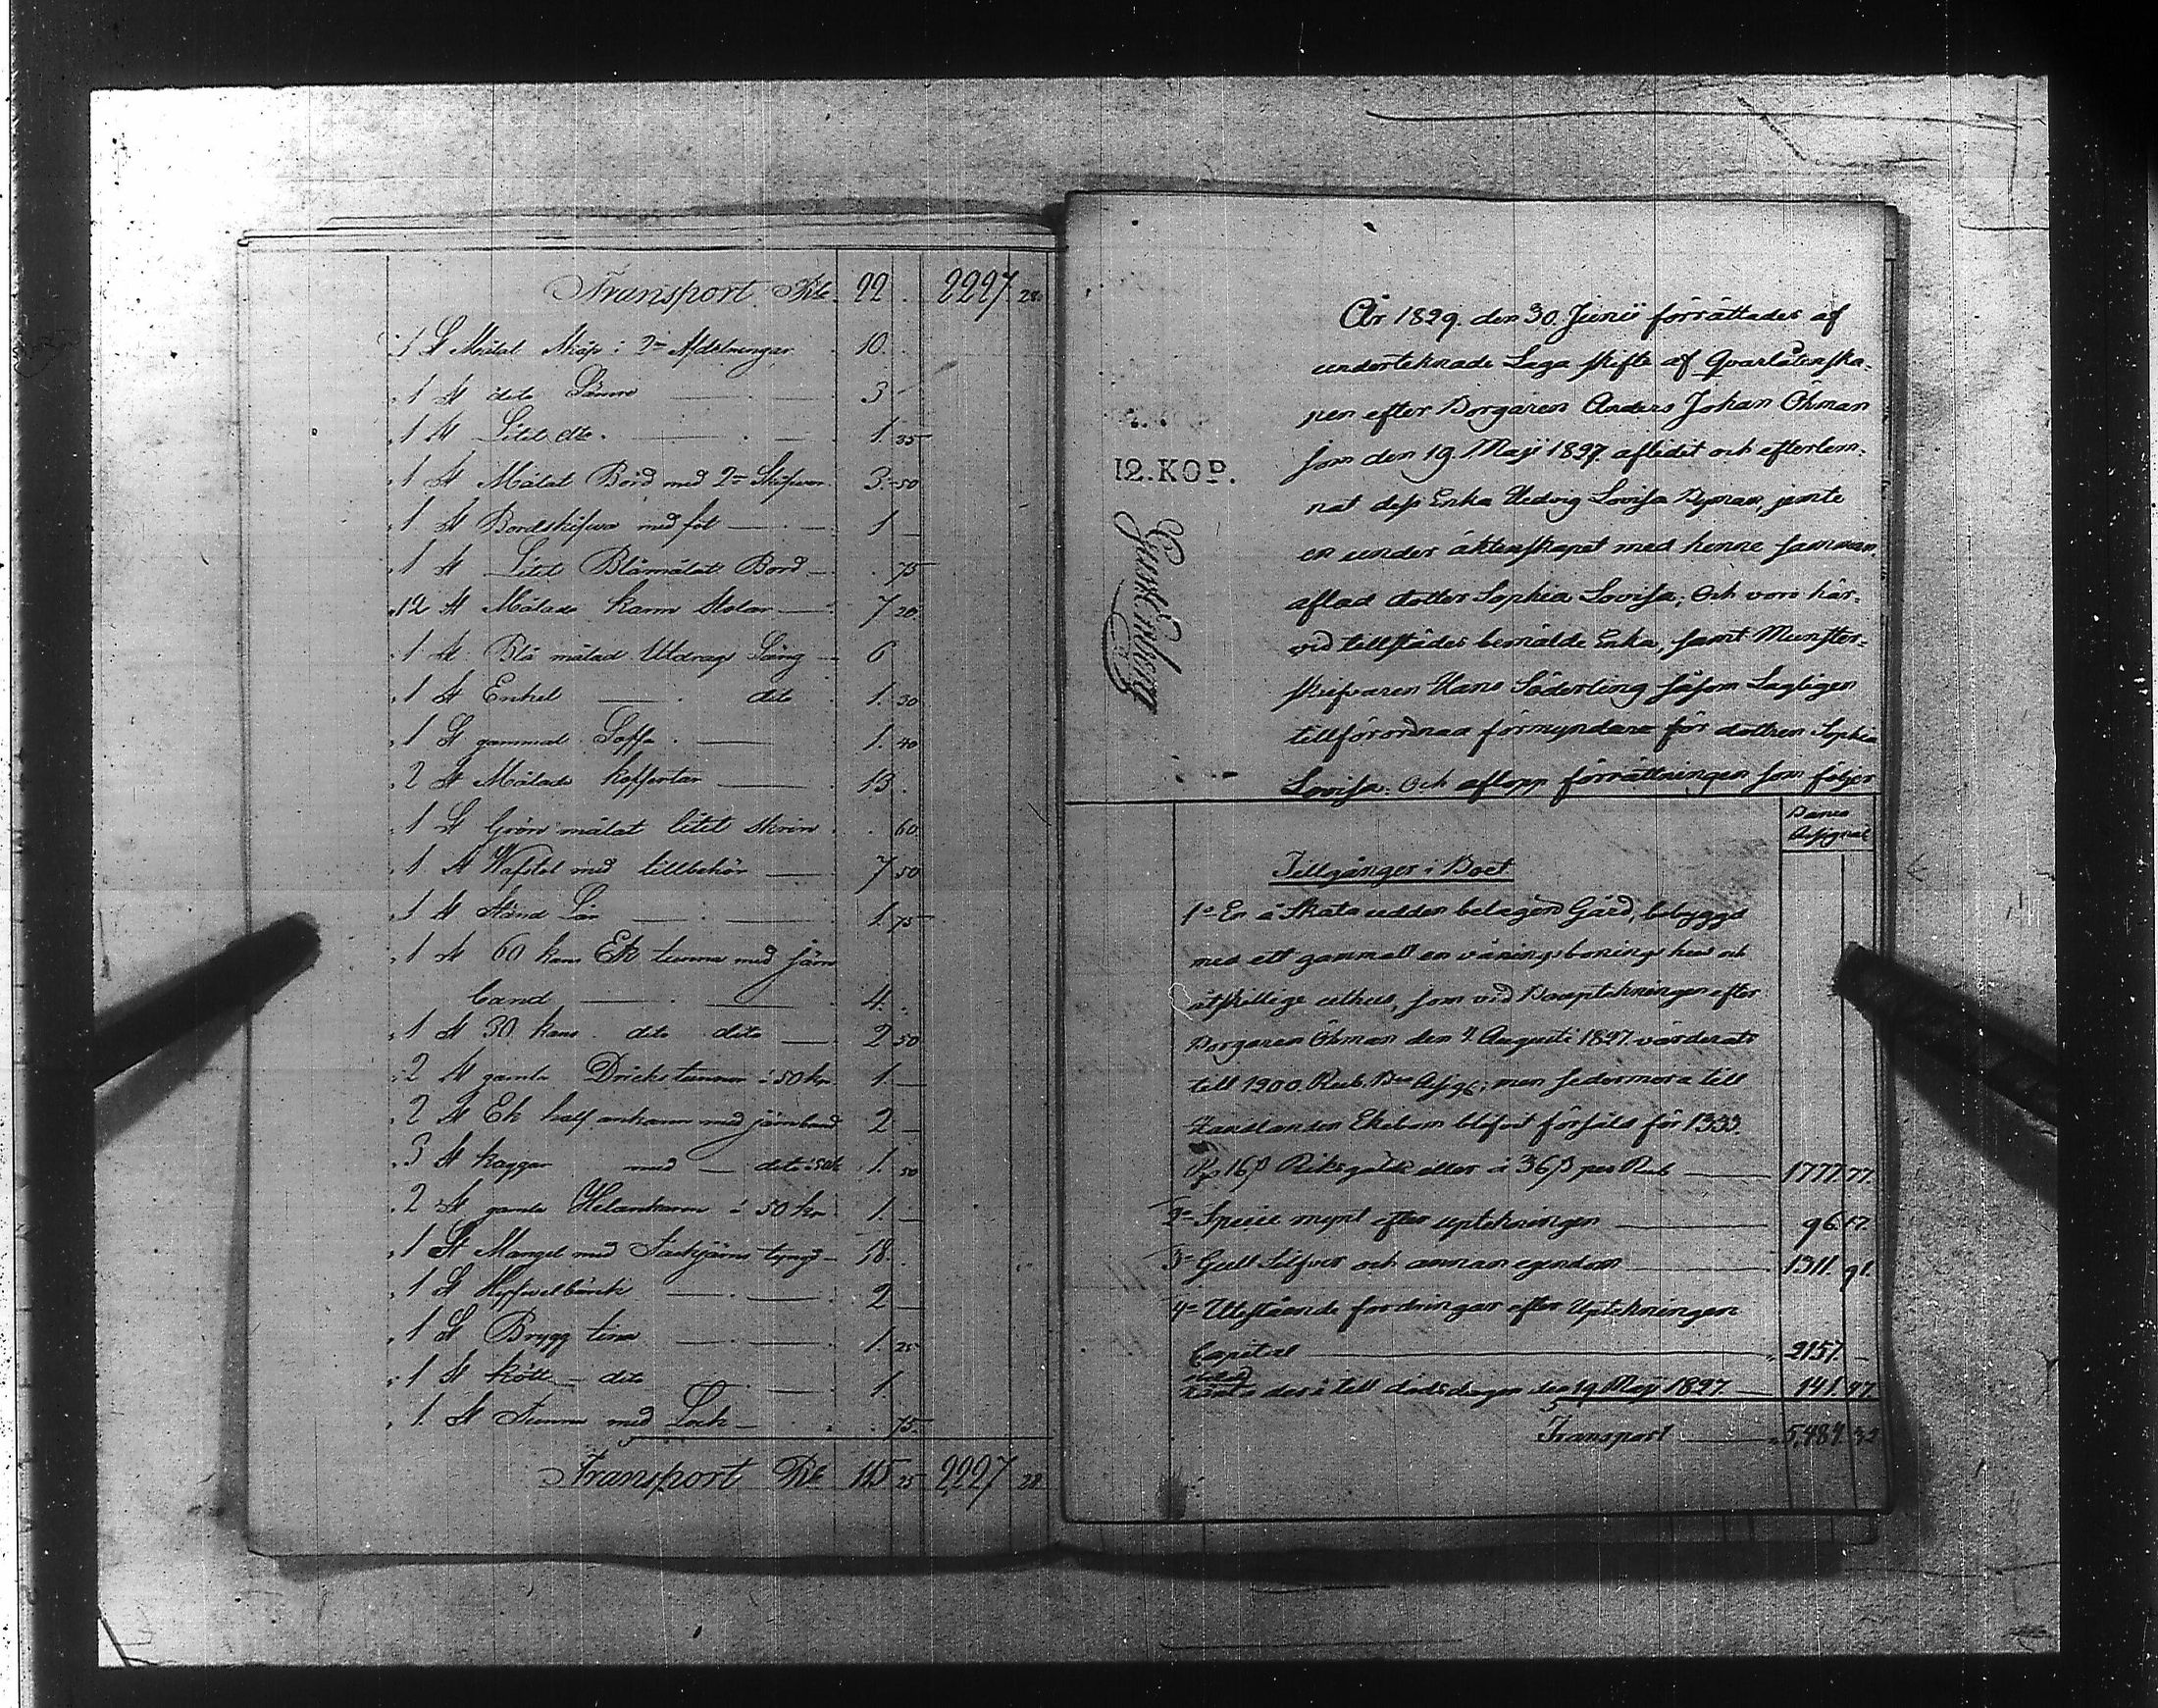 Transport Rbl 22. 2227 28
1 St Målat Skåp i 2ne Afdelningar 10.
1 St dito Sämre 3
1 St Litet dto. 1. 35
1 St Målat Bord med 2ne Skifwor 3. 50
1 St Bordskifwa med fot 1 —
1 St Litet Blåmålat Bord 75
12 St Målade karm Stolar 7 20
1 St Blå målad Utdrags Säng 6
1 St Enkel dito 1. 30
1 St gammal Soffa 1. 40
2 St Målade koffertar 13.
1 St Grön målat litet skrin 60
1 St Wäfstol med tillbehör 7 50
1 St 1. 75
1 St 60 kans Ek tunna med järn
band 4.
1 St 30 kans dito dito 2 50
2 St gamla Drickstunnor à 50 kp 1. —
2 St Ek half ankaren med järnband 2 —
3 St kaggar med dito à 50k 1. 50
2 St gamla Helankarn à 50 kp 1. —
1 St Mangel med 18.
1 St Hyfwelbänk 2 —
1 St Brygg tina 1. 25
1 St kött dito 1.
1. St Tunna med Lock 75.
Transport Rbl 115 25 2227 28
12. KOP.
År 1829. den 30. Junii förrättades af
undertecknade Laga skifte af Qvarlåtenska-
pen efter Borgaren Anders Johan Öhman
som den 19 Maji 1827. aflidit och efterlem-
nat dess Enka Hedvig Lovisa jemte
en under äktenskapet med henne samman
aflad dotter Sophia Lovisa; Och voro här-
vid tillstädes bemälde Enka, samt Munster-
skrifvaren Hans Söderling såsom Lagligen
tillförordnad förmyndare för dottren Sophia
Lovisa. Och aflopp förrättningen som följer
Banco
Assignat
Tillgånger i Boet
1o En å Skatudden belägen Gård, bebyggd
med ett gammalt en vånings bonings hus och
åtskillige uthus, som vid Bouptekningen efter
Borgaren Öhman den 4 Augusti 1827. värderats
till 1200. Rub. Bco Assigr; men sedermera till
Ekebom blifvit försåld för 1333.
16ß Riksgälds eller à 36ß per Rub 1777. 77.
2o Speciè mynt efter uptekningen 96 17.
3o Gull Silfver och annan egendom 1311. 91.
4o Utestående fordringar efter Uptekningen
Capital 2157. —
Ränta dera till dödsdagen den 19. Maji 1827. 141. 47
Transport 5,484. 32